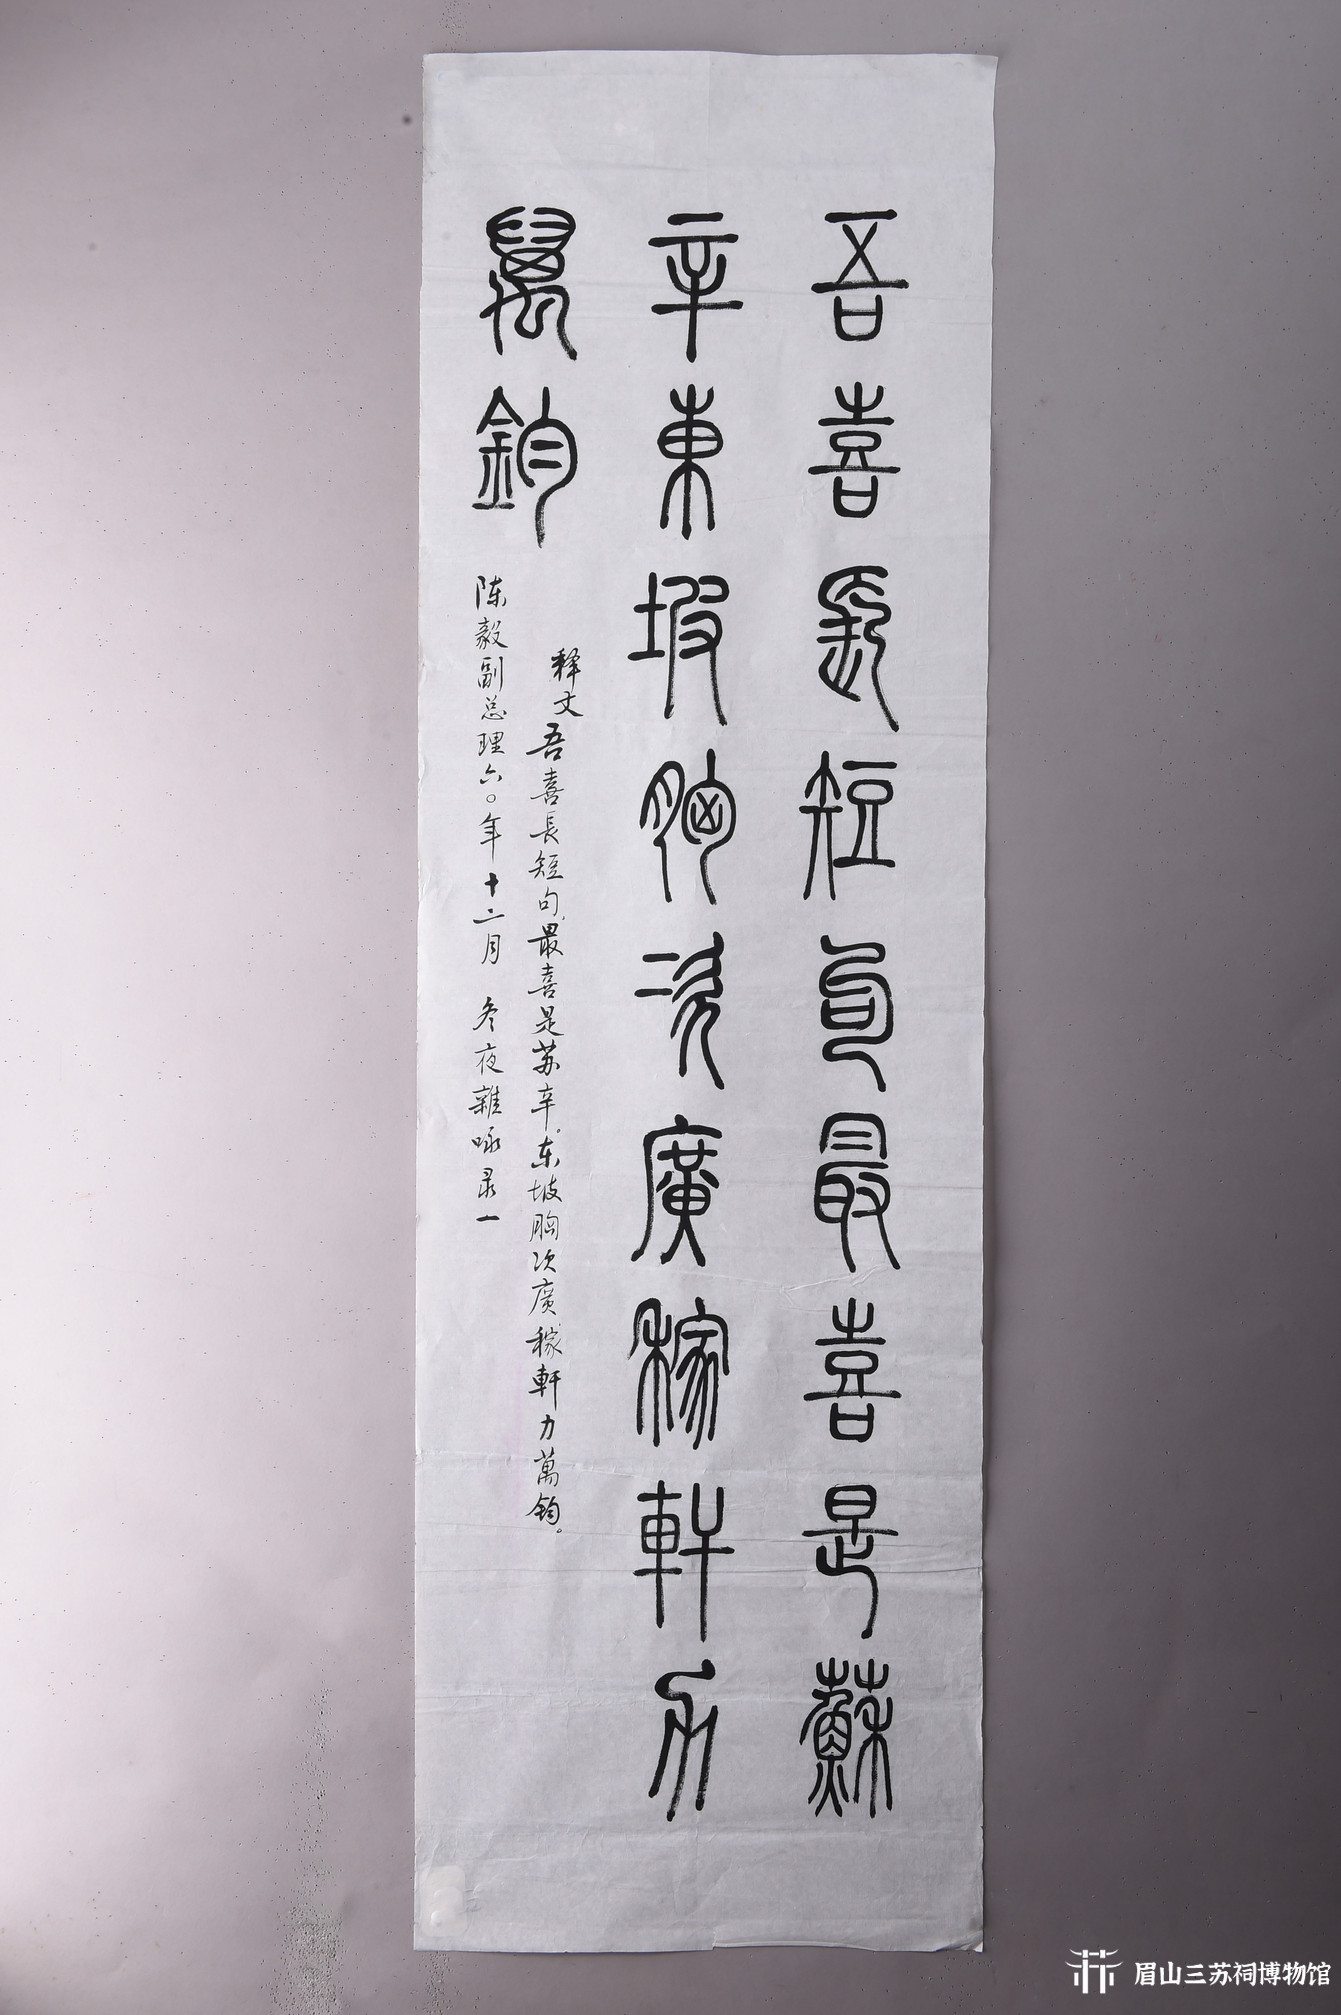 吾喜長短句最喜是蘇
辛東坡胸次廣稼軒力
萬鈞
释文吾喜長短句,最喜是苏辛。东坡胸次廣,稼軒力萬鈞。
陈毅副总理六〇年十二月 冬夜雜咏录一
眉山三苏祠博物馆